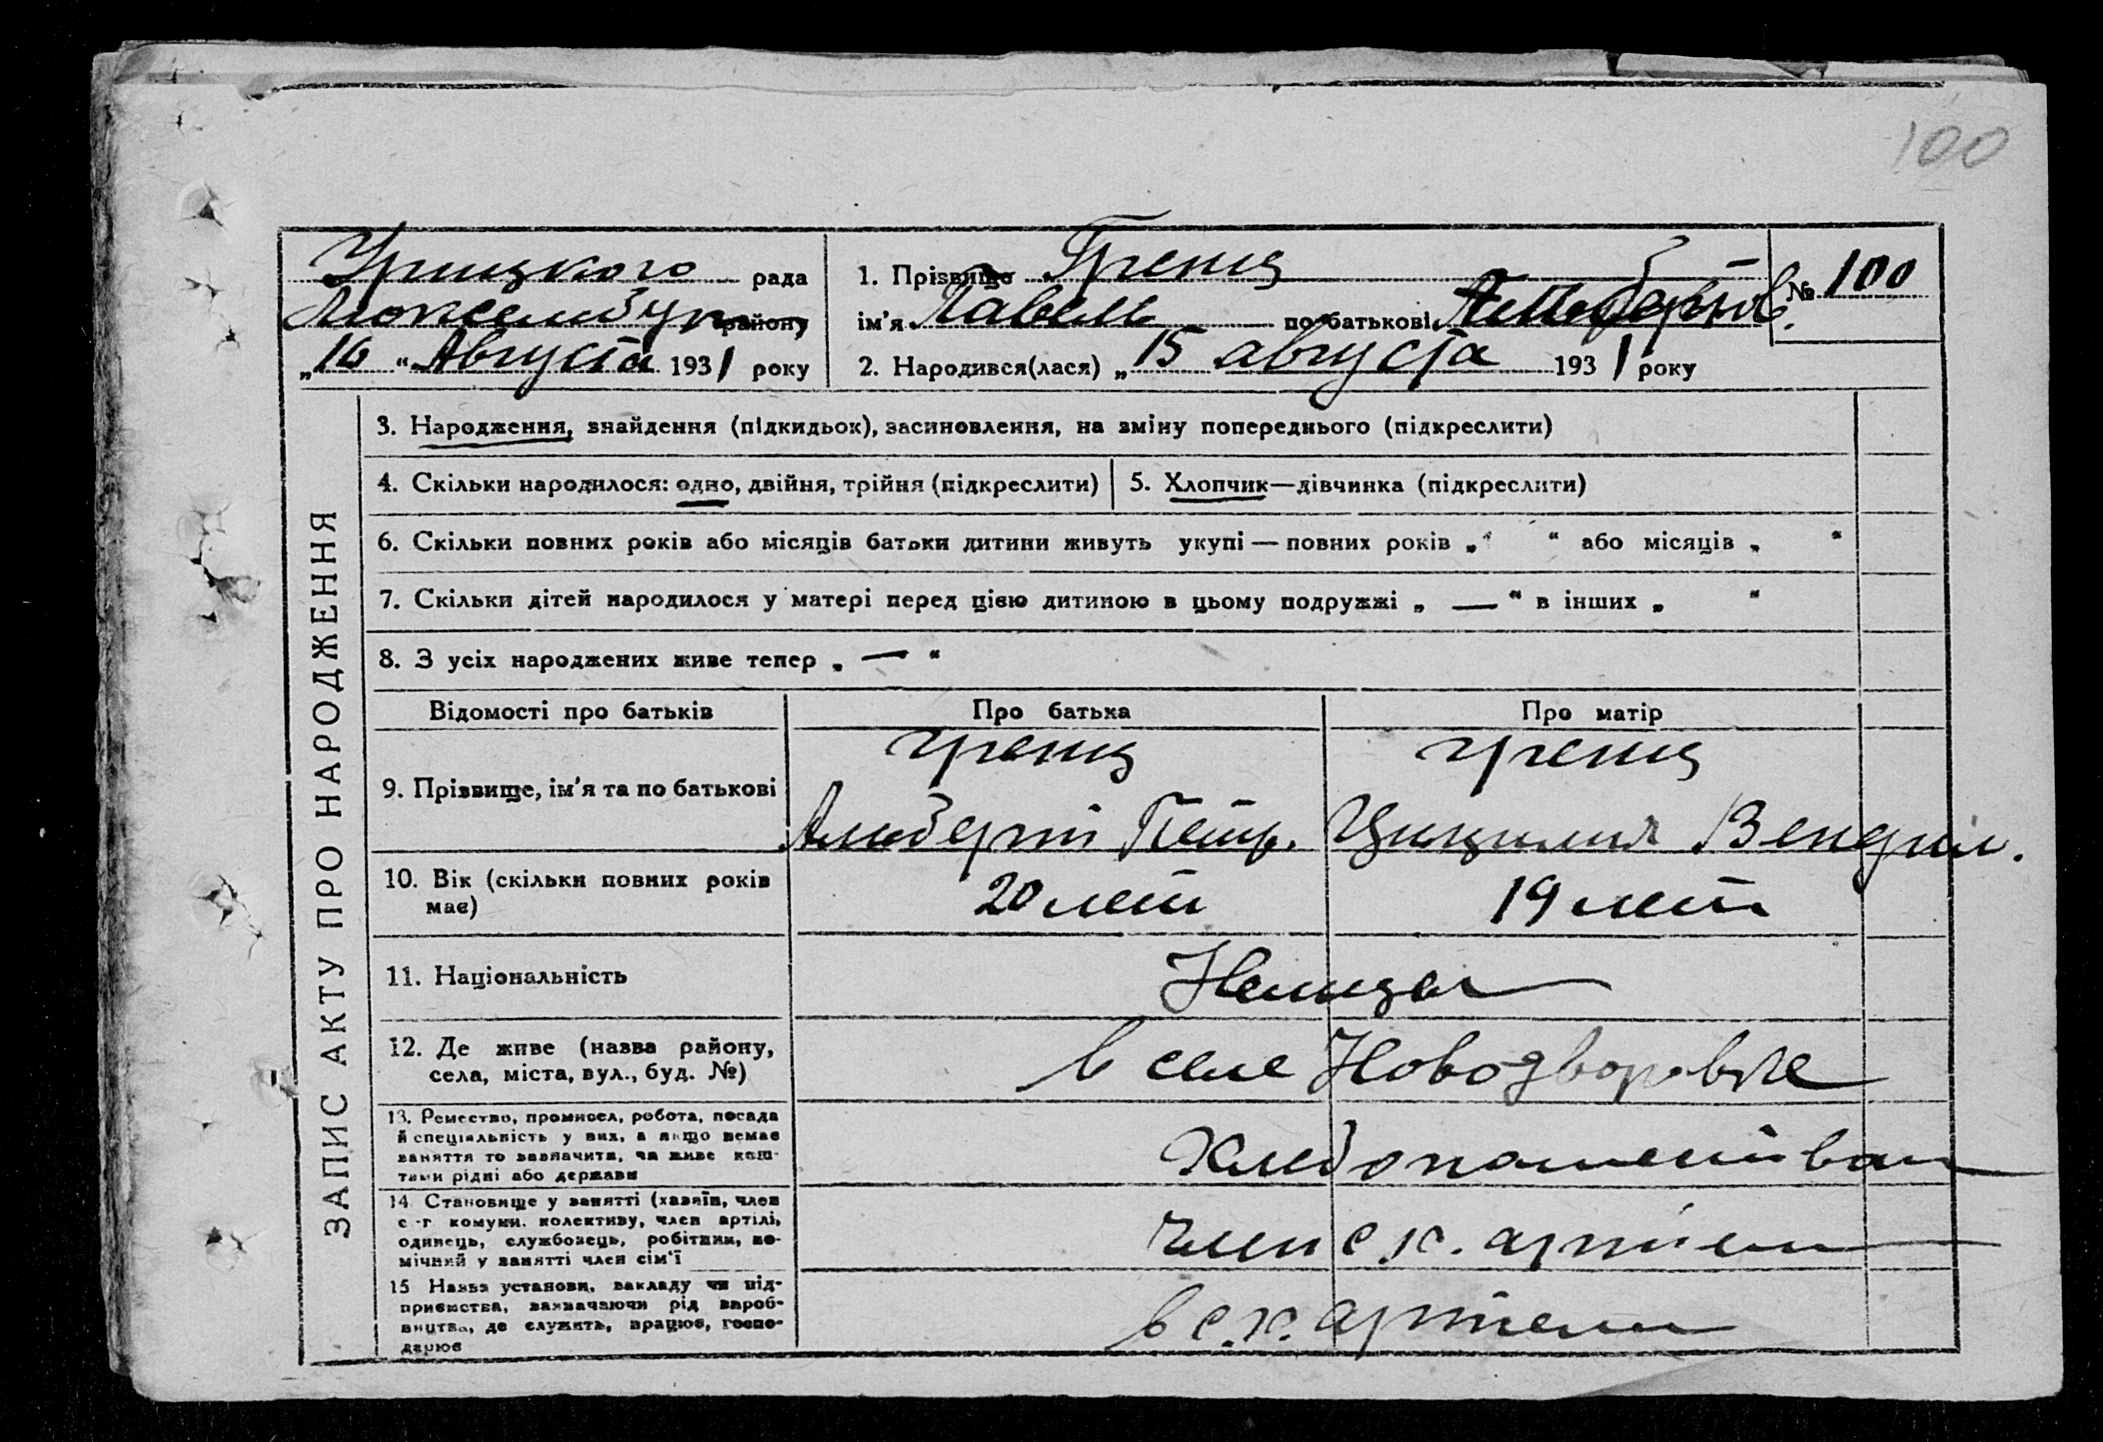 100
Урицкого рада
Люксембур району
„16“ Августа 1931 року
1. Прізвище Гренц
ім'я Павель по батькові Альбертов.
№ 100
2. Народився(лася) „15 августа 1931 року
ЗАПИС АКТУ ПРО НАРОДЖЕННЯ
3. Народження, знайдення (підкидьок), засиновлення, на зміну попереднього (підкреслити)
4. Скільки народилося: одно, двійня, трійня (підкреслити)
5. Хлопчик—дівчинка (підкреслити)
6. Скільки повних років або місяців батьки дитини живуть укупі — повних років „ “ або місяців „ “
7. Скільки дітей народилося у матері перед цією дитиною в цьому подружжі „ — “ в інших „ “
8. З усіх народжених живе тепер „ — “
Відомості про батьків
Про батька
Про матір
9. Прізвище, ім'я та по батькові
Гренц
Альберт Петр.
Гренц
Цицилия Венделин.
10. Вік (скільки повних років
має)
20 лет
19 лет
11. Національність
Немцы
12. Де живе (назва району,
села, міста, вул., буд. №)
в селе Новодворовке
13. Ремество, промисел, робота, посада
й спеціяльність у них, а якщо немає
заняття то зазначити, чи живе кош-
тами рідні або держави
Хлебопашеством
14 Становище у занятті (хазяїн, член
с-г комуни, колективу, член артілі,
одинець, службовець, робітник, по-
мічний у занятті член сім'ї
член с.х. артели
15 Назва установи, закладу чи під-
приємства, зазначаючи рід вироб-
ництва, де служить, працює, госпо-
дарює
в с.х. артели